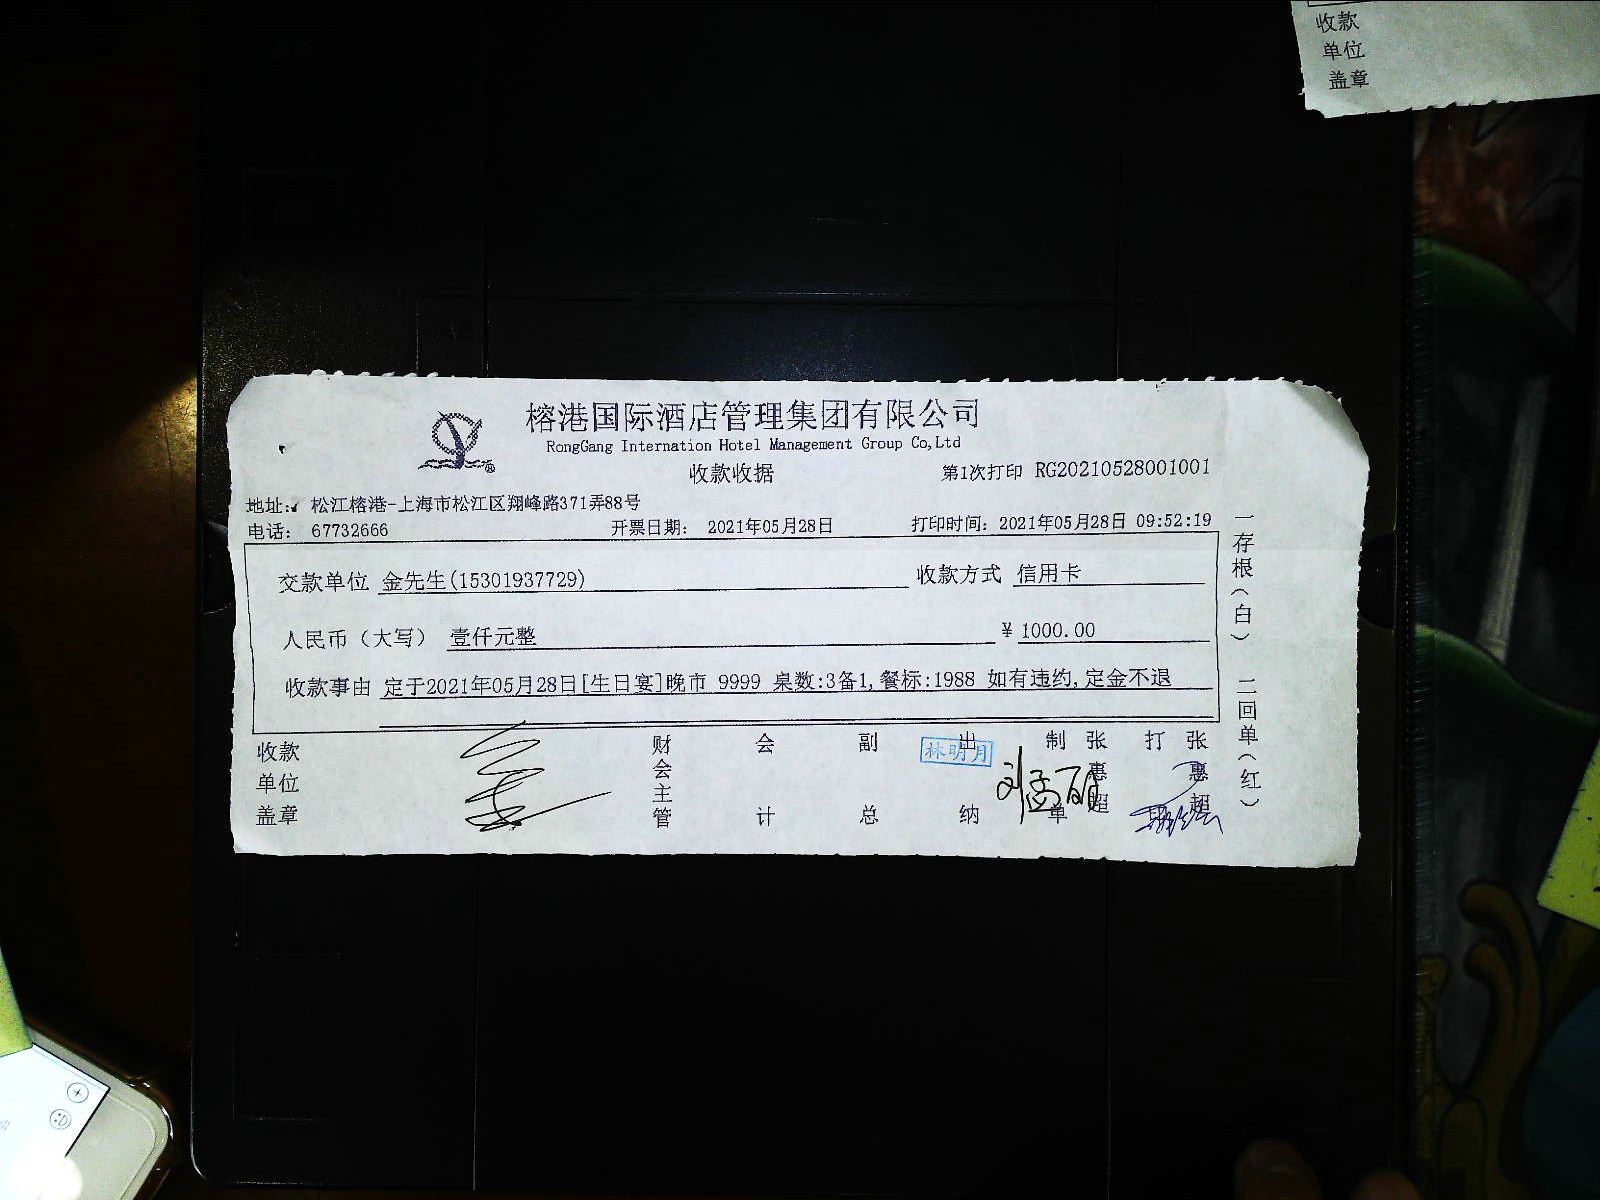 收款
单位
盖章
榕港国际酒店管理集团有限公司
RongGang Internation Hotel Management Group Co,Ltd
收款收据
第1次打印 RG20210528001001
地址: 松江榕港-上海市松江区翔峰路371弄88号
电话: 67732666 开票日期: 2021年05月28日 打印时间: 2021年05月28日 09:52:19
交款单位 金先生(15301937729) 收款方式 信用卡
人民币（大写） 壹仟元整 ¥ 1000.00
收款事由 定于2021年05月28日[生日宴]晚市 9999 桌数:3备1,餐标:1988 如有违约,定金不退
收款单位盖章
财会主管
会计
副总
出纳
林明月
制单
张惠超
打
张惠超
一存根（白）
二回单（红）